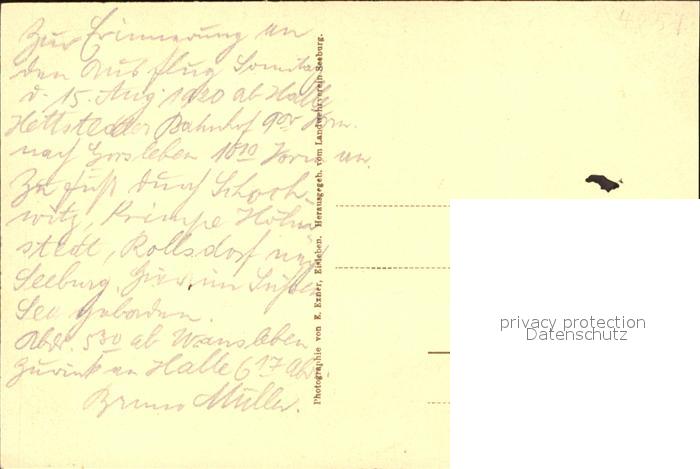 Zur Erinnerung an
den Ausflug Sonntag
d. 15. Aug. 1920 ab Halle
Hettstedter Bahnhof 9 Vorm.
nach Gorsleben 10 10 Vorm an.
Zu Fuß durch Schoch-
witz, Krimpe Höhn
stedt, Rollsdorf nach
Seeburg. Hier im Süßen
See gebaden.
Abds. 5 30 ab Wansleben
Zurück an Halle 6 17 Abds.
Bruno Müller.
Photographie von E. Exner, Eisleben. Herausgegeb. vom Landwehrverein Seeburg.
privacy protection
Datenschutz